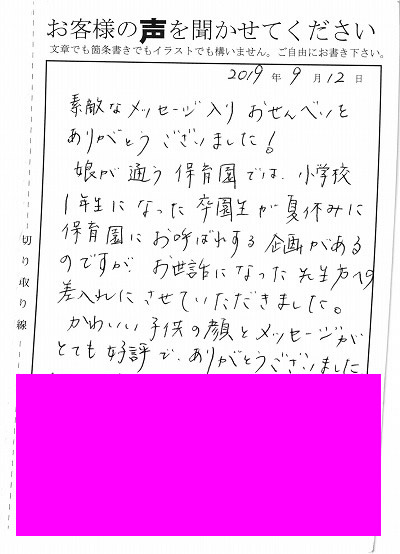 お客様の声を聞かせてください
文章でも箇条書きでもイラストでも構いません。ご自由にお書き下さい。
2019年9月12日
素敵なメッセージ入りおせんべいを
ありがとうございました!
娘が通う保育園では、小学校
1年生になった卒園生が夏休みに
保育園にお呼ばれする企画がある
のですが、お世話になった先生方への
差入れにさせていただきました。
かわいい子供の顔とメッセージが
とても好評で、ありがとうございました
切り取り線